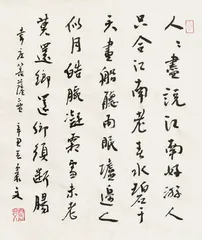 人々盡説江南好游人
只合江南老春水碧于
天畫船聽雨眠壚邊人
似月皓腕凝霜雪未老
莫還鄉還鄉須斷腸
韋庄菩薩蠻